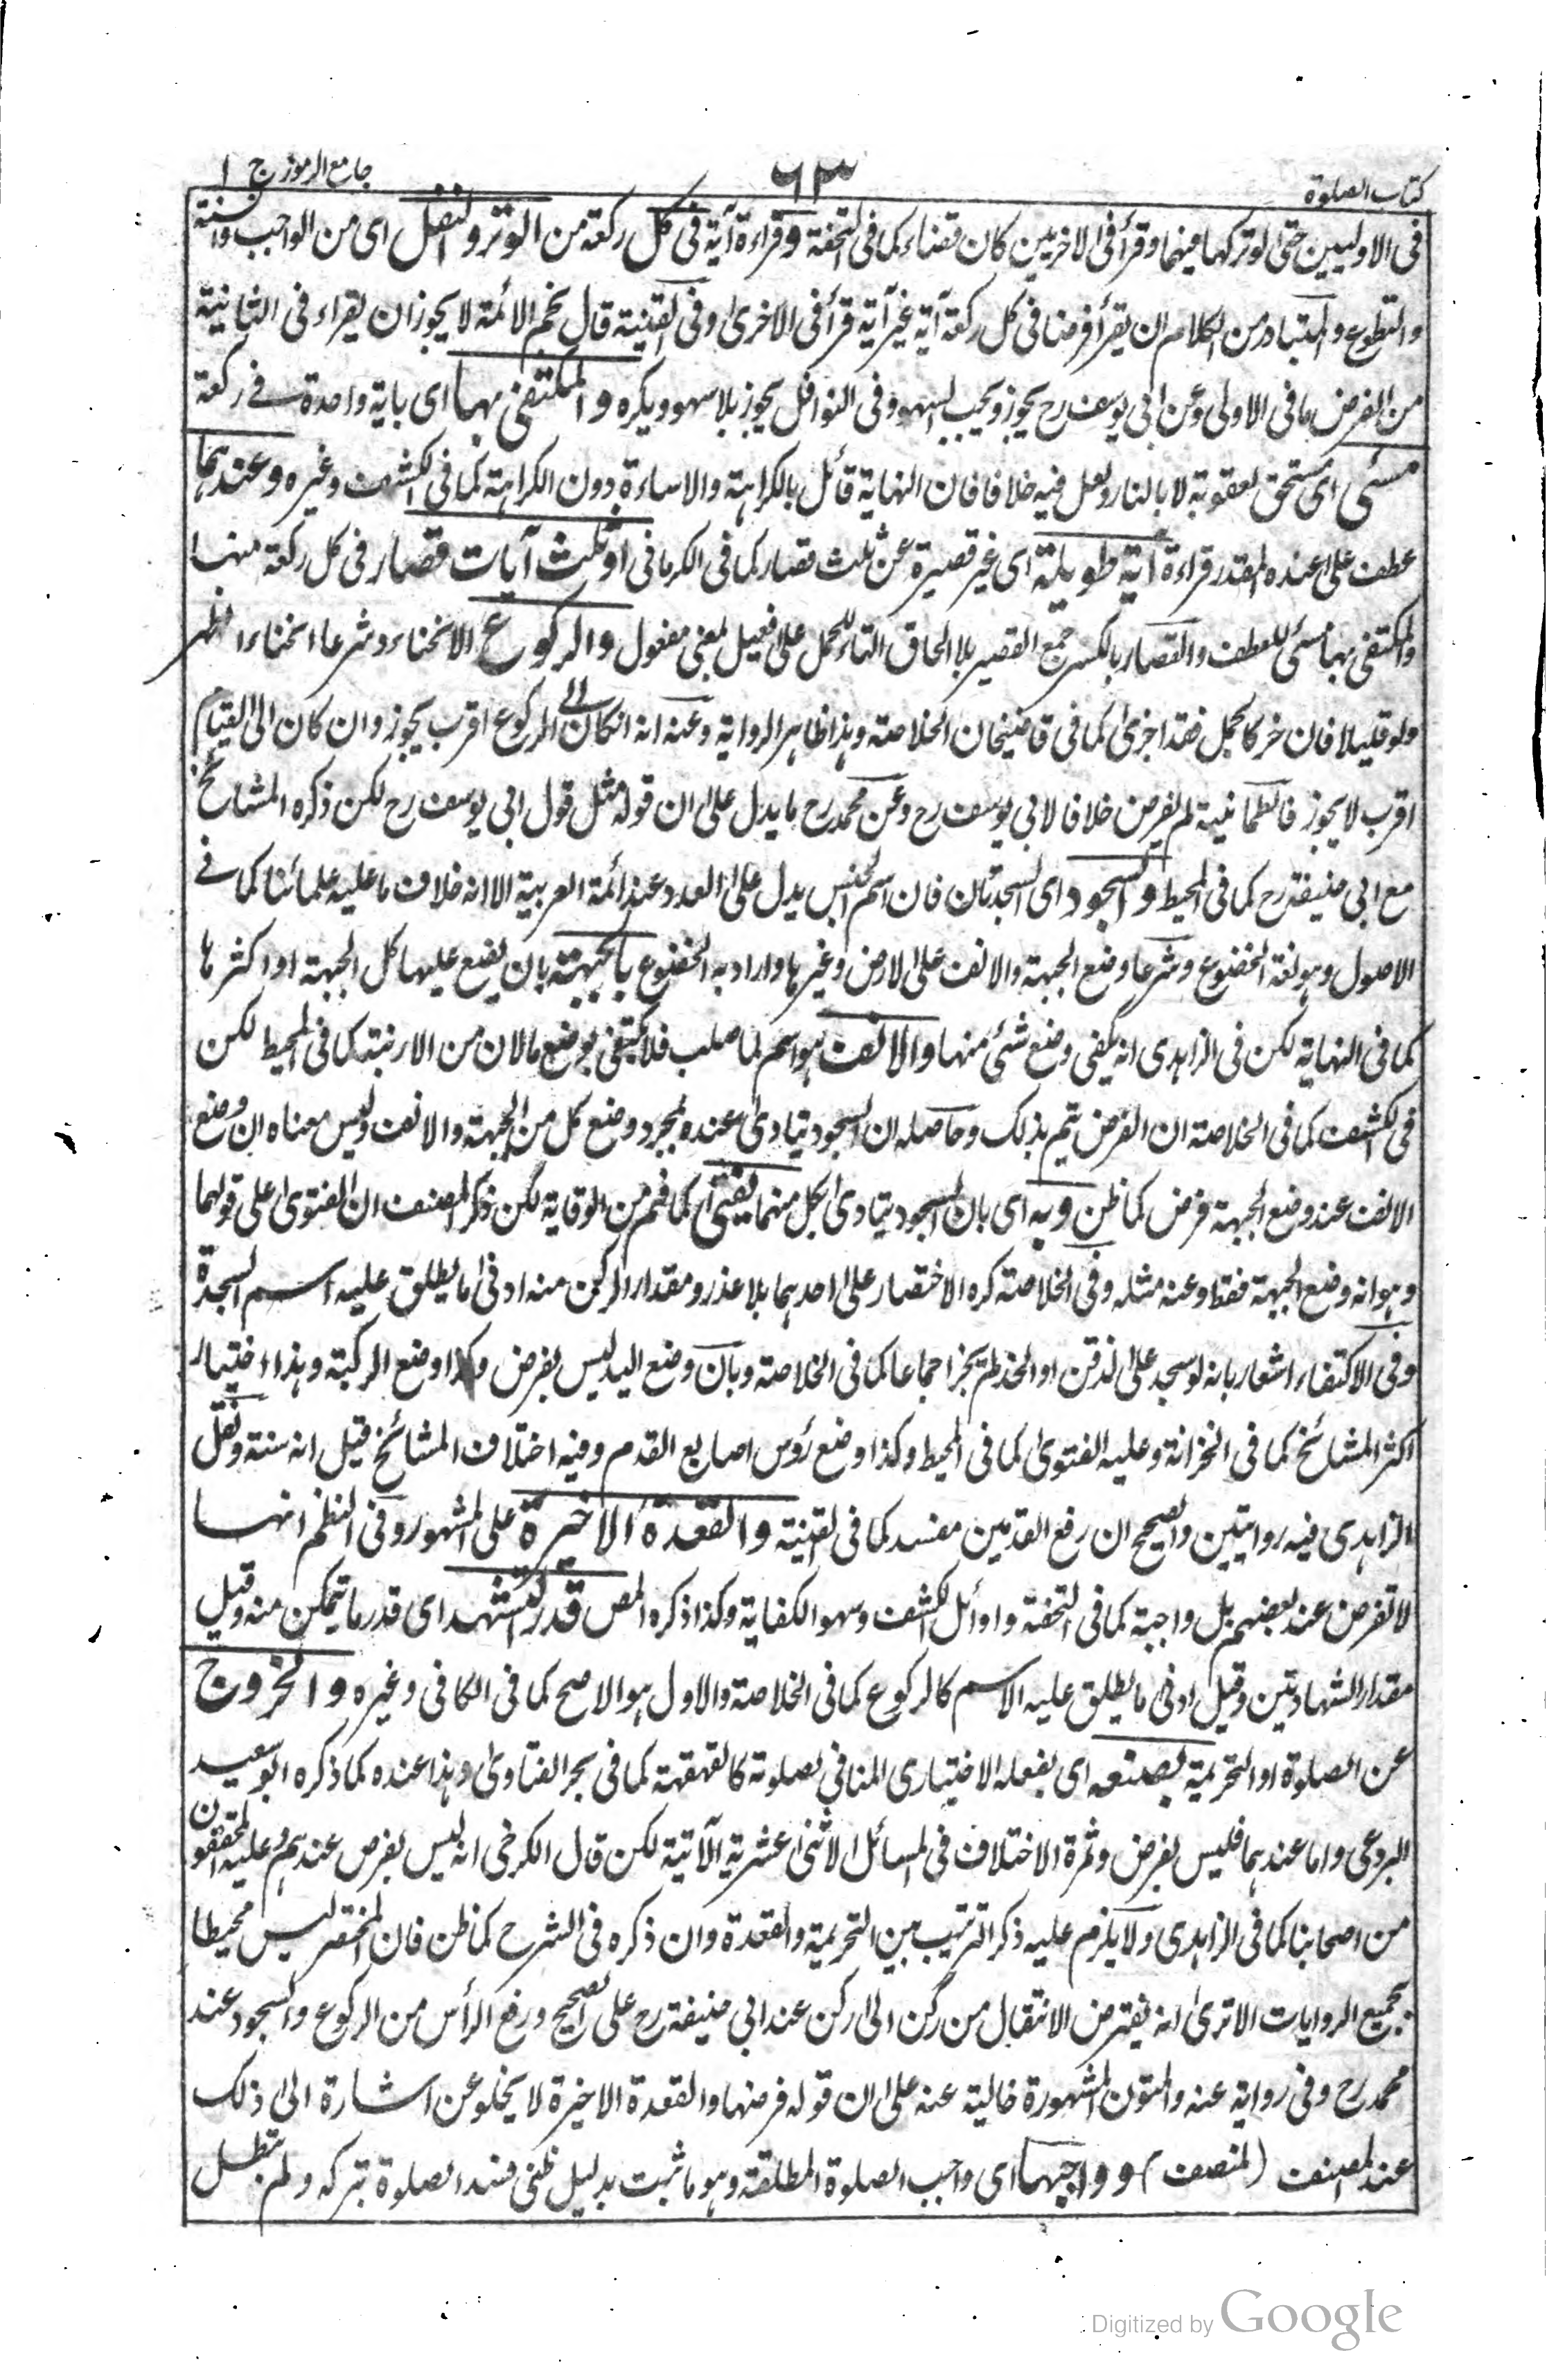 كتاب الصلوة
٦٣
جامع الرموز ج ١
فى الاوليين حتى لو تركها فيهما وقرأ فى الاخريين كان قضاء كما فى التحفة وقراءة آية فى كل ركعة من الوتر والنفل اى من الواجب والسنة
والتطوع والمتبادر من الكلام ان يقرأ فرضا فى كل ركعة آية غير آية قرأ فى الاخرى وفى القنية قال نجم الائمة لا يجوز ان يقراء فى الثانية
من الفرض ما فى الاولى وعن ابى يوسف رح يجوز ويجب السهو وفى النوافل يجوز بلا سهو ويكره والمكتفى بها اى باية واحدة فى ركعة
مسئى اى مستحق لعقوبة لا بالنار ولعل فيه خلافا فان النهاية قائل بالكراهة والاساءة دون الكراهة كما فى الكشف وغيره وعندهما
عطف على عنده المقدر قراءة آية طويلة اى غير قصيرة عن ثلث قصار كما فى الكرمانى او ثلث آيات قصار فى كل ركعة منها
والمكتفى بها مسئى للعطف والقصار بالكسر جمع القصير بلا الحاق التاء للحمل على فعيل بمعنى مفعول والركوع الانحناء وشرعا انحناء الظهر
ولو قليلا فان خر كالجمل فقد اجزى كما فى قاضيخان الخلاصة وهذا ظاهر الرواية وعنه انه انكان الى الركوع اقرب يجوز وان كان الى القيام
اقرب لا يجوز فالطمانينة لم يفرض خلافا لابى يوسف رح وعن محمد رح ما يدل على ان قوله مثل قول ابى يوسف رح لكن ذكره المشائخ
مع ابى حنيفة رح كما فى المحيط والسجود اى السجدتان فان اسم الجنس يدل على العدد عند ائمة العربية الا انه خلاف ما عليه علمائنا كما فى
الاصول وهو لغة الخضوع وشرعا وضع الجبهة والانف على الارض وغيرها واراد به الخضوع بالجبهة بان يضع عليها كل الجبهة او اكثرها
كما فى النهاية لكن فى الزاهدى انه يكفى وضع شئ منها والانف هو اسم لما صلب فلا يكتفى بوضع مالان من الارنبة كما فى المحيط لكن
فى الكشف كما فى الخلاصة ان الفرض يتم بذلك وحاصله ان السجود يتادى عنده بمجرد وضع كل من الجبهة والانف وليس معناه ان وضع
الانف عند وضع الجبهة فرض كما ظن وبه اى بان السجود يتادى بكل منهما يفتى كما فهم من الوقاية لكن ذكر المصنف ان الفتوى على قولهما
وهو انه وضع الجبهة فقط وعنه مثله وفى الخلاصة كره الاختصار على احدهما بلا عذر ومقدار الركن منه ادنى ما يطلق عليه اسم السجدة
وفى الاكتفاء اشعار بانه لو سجد على الذقن او الخد لم يجز اجماعا كما فى الخلاصة وبان وضع اليد ليس بفرض وكذا وضع الركبة وهذا اختيار
اكثر المشائخ كما فى الخزانة وعليه الفتوى كما فى المحيط وكذا وضع رؤس اصابع القدم وفيه اختلاف المشائخ قيل انه سنة ونقل
الزاهدى فيه روايتين والصحيح ان رفع القدمين مفسد كما فى القنية والقعدة الاخيرة على المشهور وفى النظم انها
لا تفرض عند بعضهم بل واجبة كما فى التحفة واوائل الكشف وسهو الكفاية وكذا ذكره المص قدر التشهد اى قدر ما يتمكن منه وقيل
مقدار الشهادتين وقيل ادنى ما يطلق عليه الاسم كالركوع كما فى الخلاصة والاول هو الاصح كما فى الكافى وغيره والخروج
عن الصلوة او التحريمة بصنعه اى بفعله الاختيارى المنافى لصلوته كالقهقهة كما فى بحر الفتاوى وهذا عنده كما ذكره ابو سعيد
البردعى واما عندهما فليس بفرض وثمرة الاختلاف فى المسائل الاثنى عشرية الآتية لكن قال الكرخى انه ليس بفرض عندهم وعليه المحققون
من اصحابنا كما فى الزاهدى ولا يلزم عليه ذكر الترتيب بين التحريمة والقعدة وان ذكره فى الشرح كما ظن فان المختصر ليس محيطا
بجميع الروايات الا ترى انه يفترض الانتقال من ركن الى ركن عند ابى حنيفة رح على الصحيح ورفع الرأس من الركوع والسجود عند
محمد رح وفى رواية عنه والمتون المشهورة خالية عنه على ان قوله فرضها والقعدة الاخيرة لا يخلو عن اشارة الى ذلك
عند المصنف (المنصف) وواجبها اى واجب الصلوة المطلقة وهو ما ثبت بدليل ظنى فسد الصلوة بتركه ولم تبطل
Digitized by Google